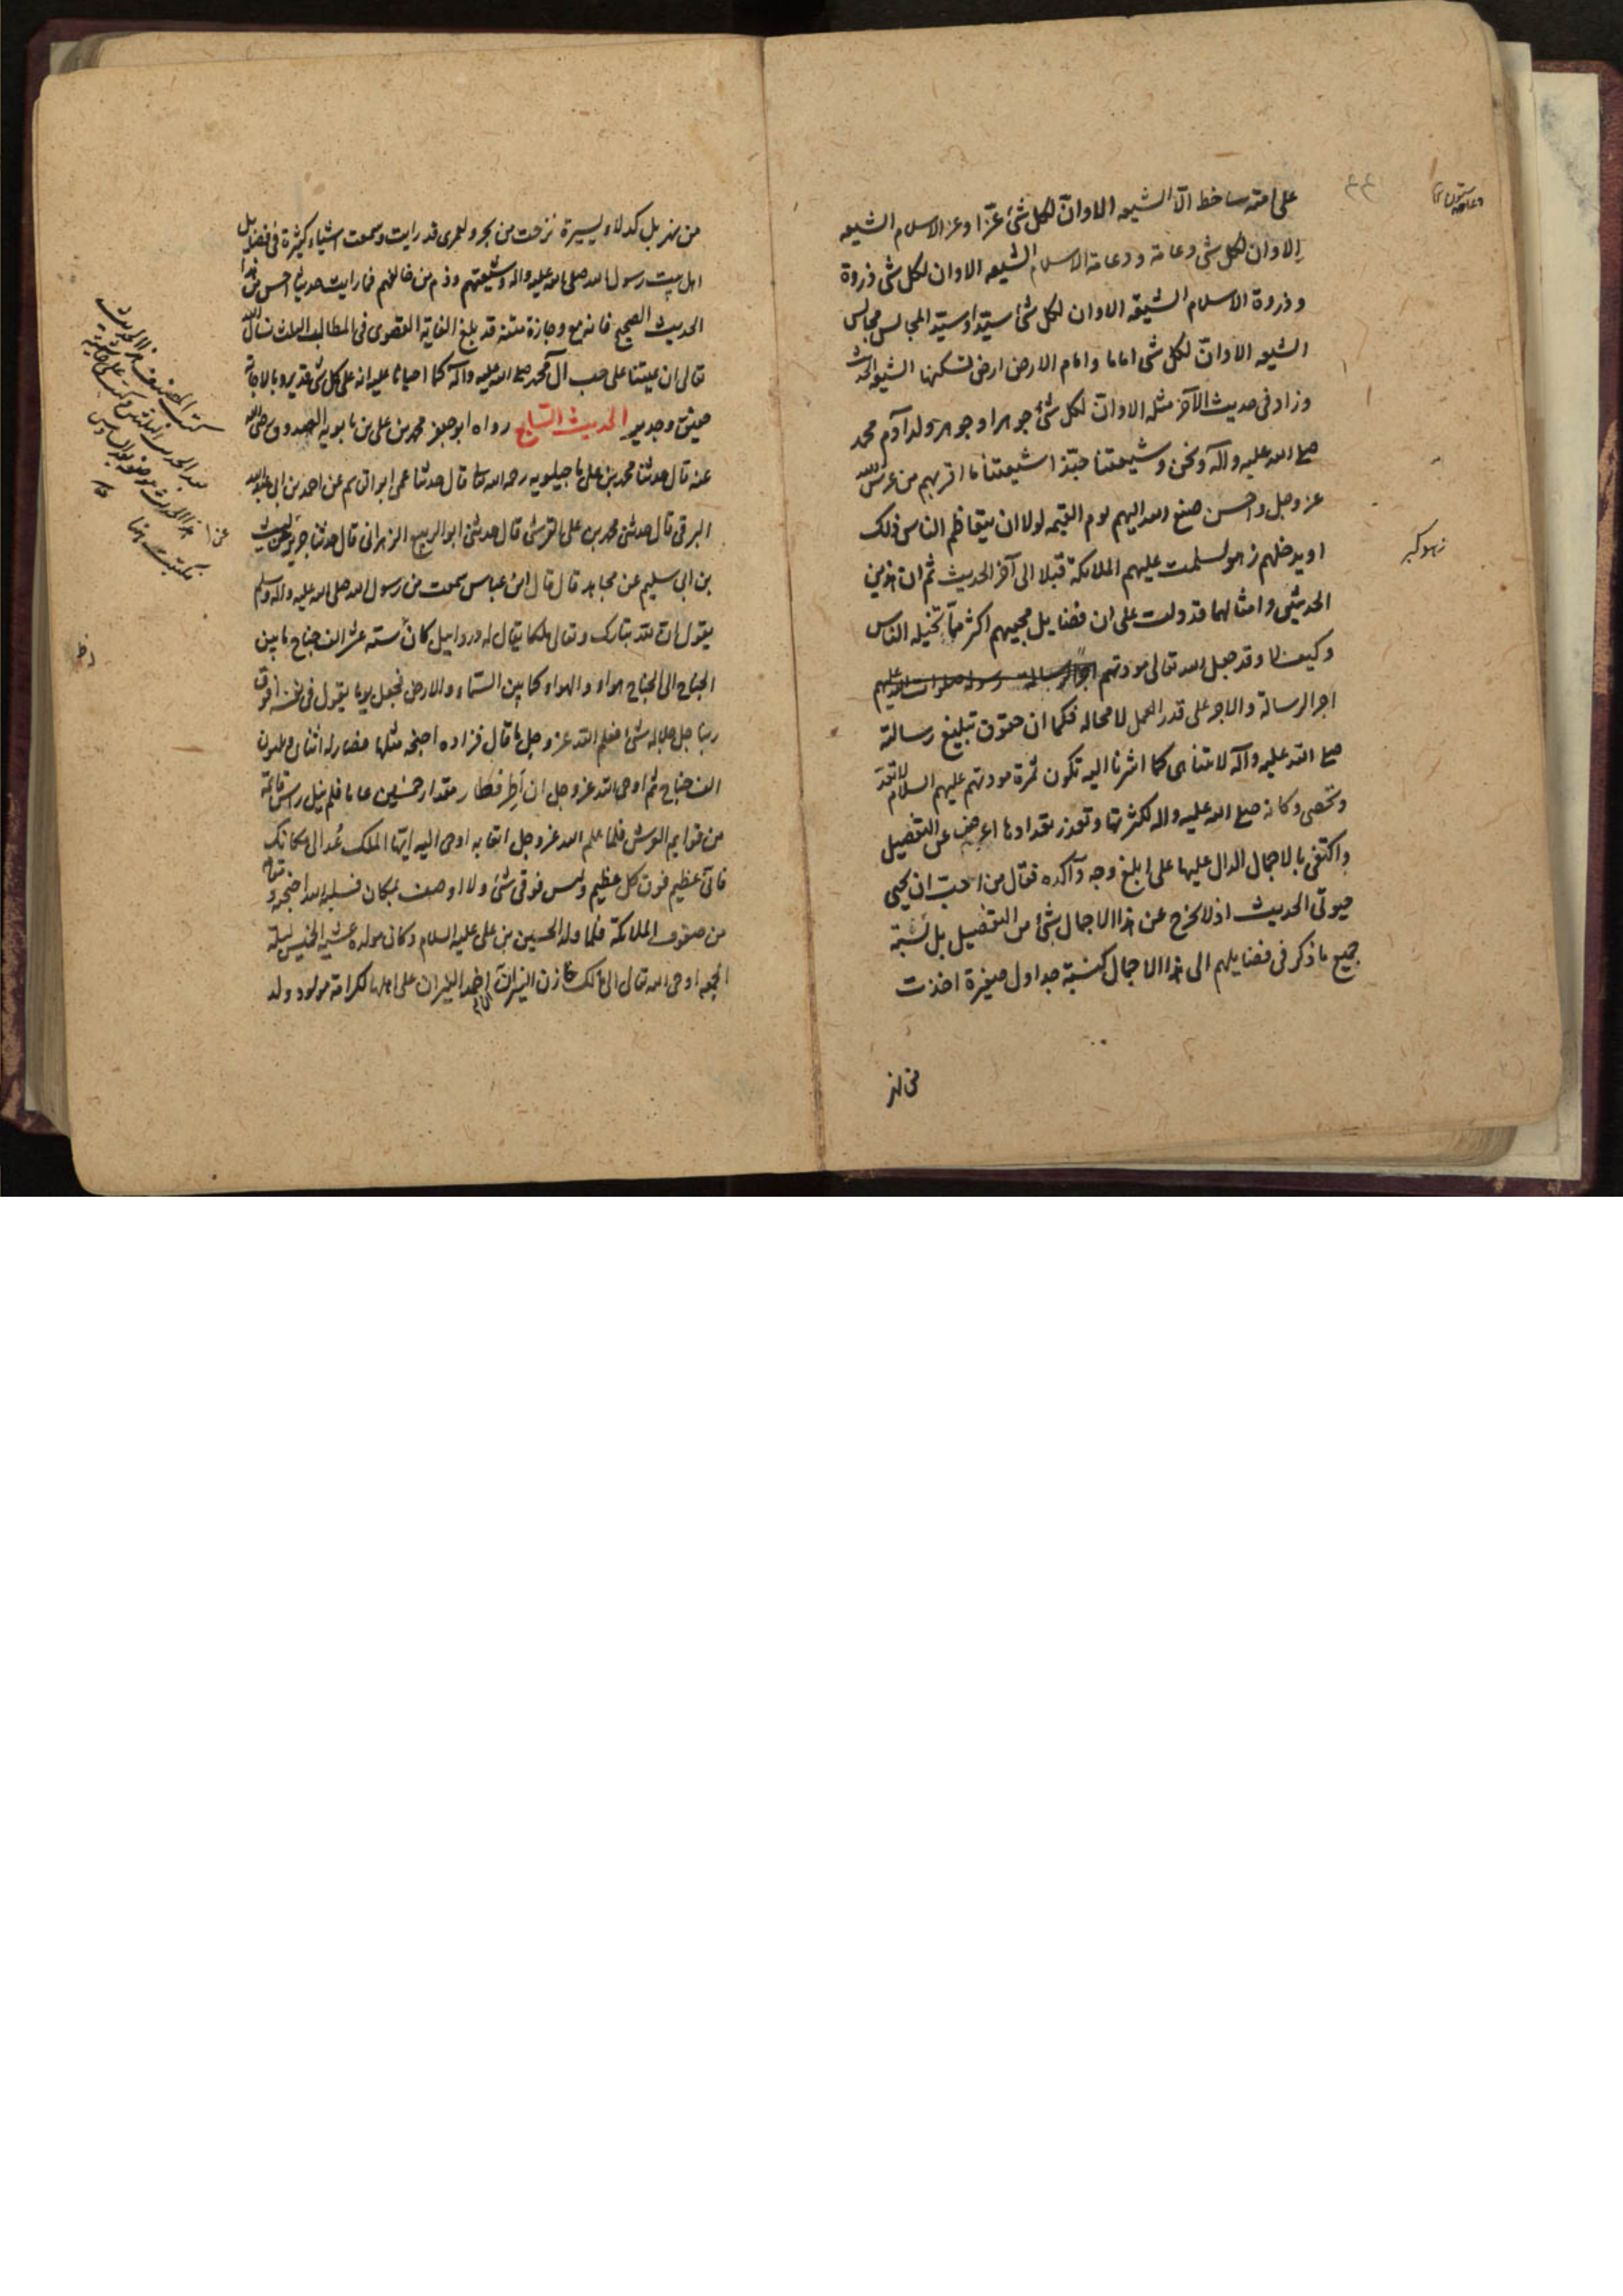 على امته ساخط الا الشيعه الا وان لكل شئ عزا وعز الاسلام الشيعه
الا وان لكل شى دعامة ودعامة الاسلام الشيعه الا وان لكل شى ذروة
وذروة الاسلام الشيعه الا وان لكل شئ سيدا وسيد المجالس مجالس
الشيعه الا وان لكل شى اماما وامام الارض ارض تسكنها الشيعه الحديث
وزاد فى حديث الآخر مثله الا وان لكل شئ جوهرا وجوهر ولد آدم محمد
صلى الله عليه وآله ونحن وشيعتنا حبذا شيعتنا ما اقربهم من عرش الله
عز وجل واحسن صنع الله اليهم يوم القيمه لولا ان يتعاظم الناس ذلك
او يدخلهم زهو لسلمت عليهم الملائكة قبلا الى آخر الحديث ثم ان هذين
الحديثين وامثالهما قد دلت على ان فضايل محبيهم اكثر مما تخيله الناس
وكيف لا وقد جعل الله تعالى مودتهم
اجر الرسالة والاجر على قدر العمل لا محاله فكما ان حقوق تبليغ رسالته
صلى الله عليه وآله لا تتناهى كما اشرنا اليه تكون ثمرة مودتهم عليهم السلام لا تعد
وتحصى وكانه صلى الله عليه واله لكثرتها وتعذر تعدادها اعرض عن التفصيل
واكتفى بالاجمال الدال عليها على ابلغ وجه وآكده فقال من احب ان يحيى
حيوتى الحديث اذ لا يخرج عن هذا الاجمال شئ من التفصيل بل نسبة
جميع ما ذكر فى فضايلهم الى هذا الاجمال كنسبة جداول صغيرة اخذت
زهو كبر
من نهر بل كدلاء يسيرة نزحت من بحر ولعمرى قد رايت وسمعت اشياء كثيرة فى فضايل
اهل بيت رسول الله صلى الله عليه واله وشيعتهم وذم من خالفهم فما رايت حديثا احسن من هذا
الحديث الصحيح فانه مع وجازة متنه قد بلغ الغاية القصوى فى المطالب الثلث نسال الله
تعالى ان يميتنا على حب آل محمد صلى الله عليه وآله كما احيانا عليه انه على كل شى قدير وبالاجابة
حقيق وجدير الحديث السابع رواه ابو جعفر محمد بن على بن بابويه الصدوق رضى الله
عنه قال حدثنا محمد بن على ماجيلويه رحمه الله قال حدثنا عمى ابو القاسم عن احمد بن ابى عبد الله
البرقى قال حدثنى محمد بن على القرشى قال حدثنى ابو الربيع الزهرانى قال حدثنا جرير عن ليث
بن ابى سليم عن مجاهد قال قال ابن عباس سمعت من رسول الله صلى الله عليه واله وسلم
يقول ان لله تبارك وتعالى ملكا يقال له دردائيل كان له ستة عشر الف جناح ما بين
الجناح الى الجناح هواء والهواء كما بين السماء والارض فجعل يوما يقول فى نفسه افوق
ربنا جل جلاله شئ فعلم الله عز وجل ما قال فزاده اجنحه مثلها فصار له اثنان وثلثون
الف جناح ثم اوحى الله عز وجل ان طر فطار مقدار خمسين عاما فلم ينل راس قائمة
من قوايم العرش فلما علم الله عز وجل اتعابه اوحى اليه ايها الملك عد الى مكانك
فانى عظيم فوق كل عظيم وليس فوقى شئ ولا اوصف بمكان فسلبه الله اجنحته ومقامه
من صفوف الملائكة فلما ولد الحسين بن على عليه السلام وكان مولده عشية الخميس ليلة
الجمعه اوحى الله تعالى الى مالك خازن النيران ان اخمد النيران على اهلها لكرامة مولود ولد